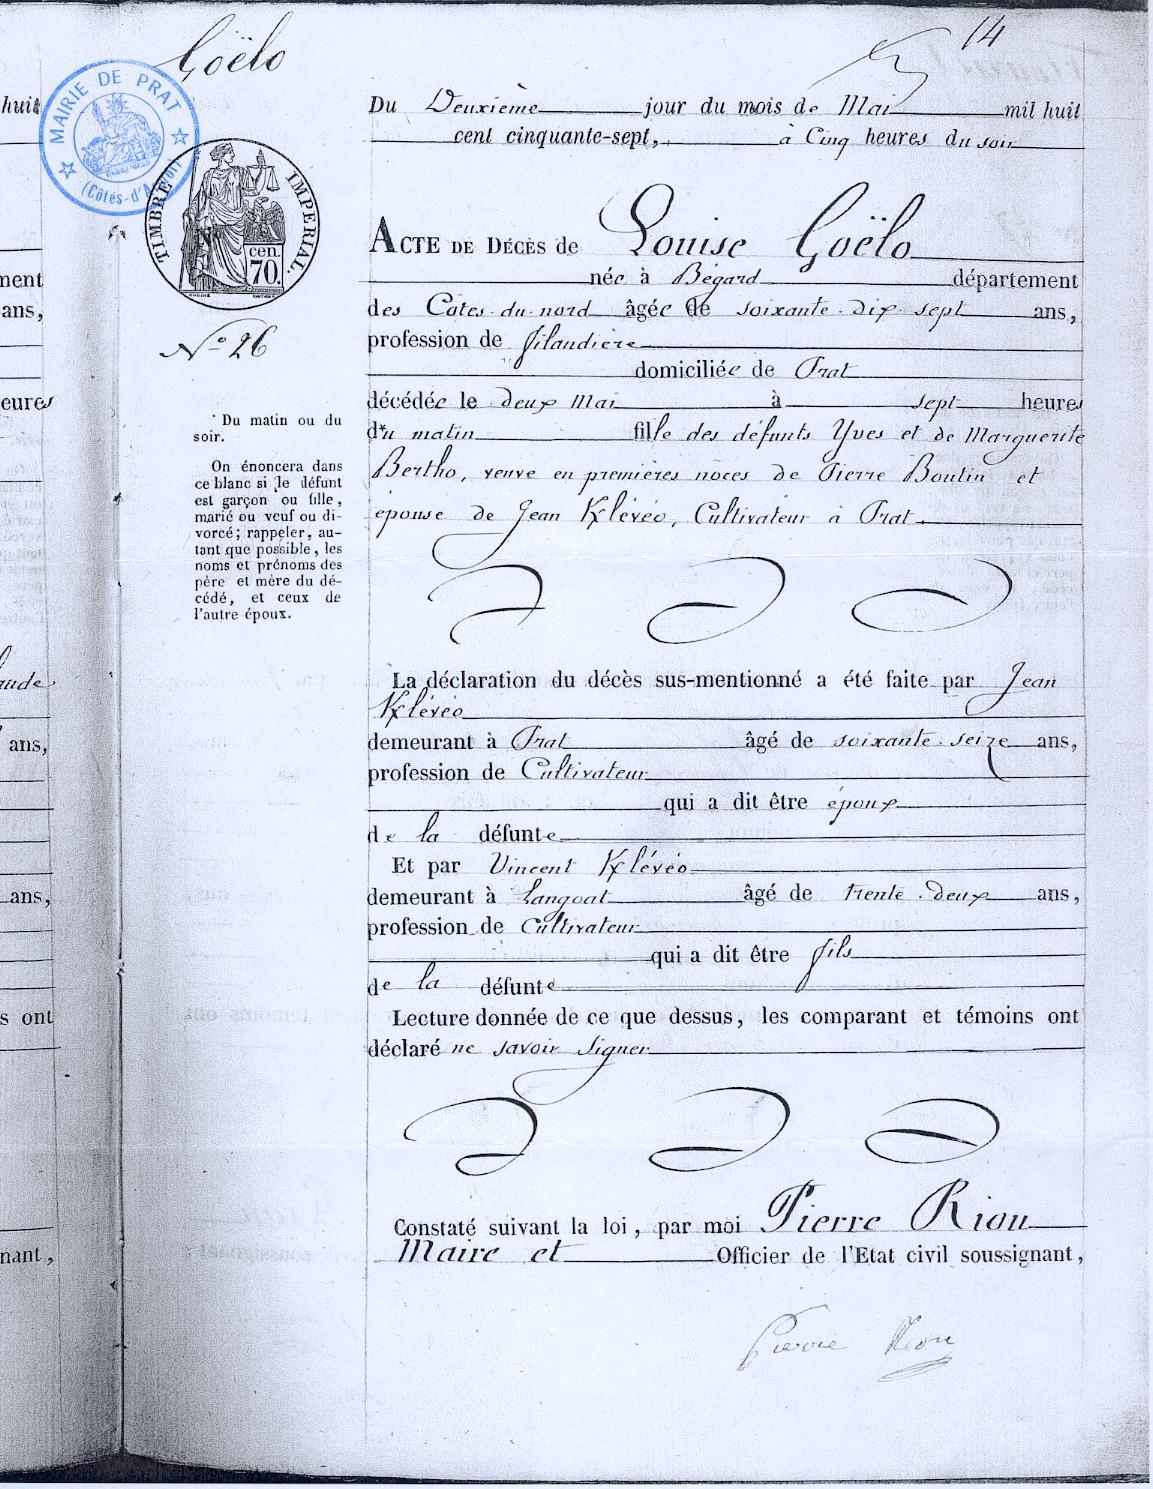 14
Goëlo
MAIRIE DE PRAT
(Côtes-d'Armor)
TIMBRE IMPERIAL.
cen.
70.
N.° 26
Du Deuxième jour du mois de Mai mil huit
cent cinquante-sept, à Cinq heures du soir
ACTE DE DÉCÈS de Louise Goëlo
née à Bégard département
des Côtes-du-nord âgée de soixante-dix-sept ans,
profession de filandière
domiciliée de Prat
décédée le deux Mai à sept heures
d*u matin fille des défunts Yves et de Marguerite
Bertho, veuve en premières noces de Pierre Boutin et
épouse de Jean Kklévéo, Cultivateur à Prat.
* Du matin ou du
soir.
On énoncera dans
ce blanc si le défunt
est garçon ou fille,
marié ou veuf ou di-
vorcé; rappeler, au-
tant que possible, les
noms et prénoms des
père et mère du dé-
cédé, et ceux de
l'autre époux.
La déclaration du décès sus-mentionné a été faite par Jean
Kklévéo
demeurant à Prat âgé de soixante-seize ans,
profession de Cultivateur
qui a dit être époux
de la défunte
Et par Vincent Kklévéo
demeurant à Langoat âgé de trente-deux ans,
profession de Cultivateur
qui a dit être fils
de la défunte
Lecture donnée de ce que dessus, les comparant et témoins ont
déclaré ne savoir signer
Constaté suivant la loi, par moi Pierre Riou
Maire et Officier de l'Etat civil soussignant,
Pierre Riou
huit
ment
ans,
eures
aude
ans,
ans,
s ont
nant,